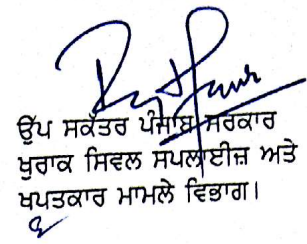 ਉੱਪ ਸਕੱਤਰ ਪੰਜਾਬ ਸਰਕਾਰ
ਖੁਰਾਕ ਸਿਵਲ ਸਪਲਾਈਜ਼ ਅਤੇ
ਖਪਤਕਾਰ ਮਾਮਲੇ ਵਿਭਾਗ।